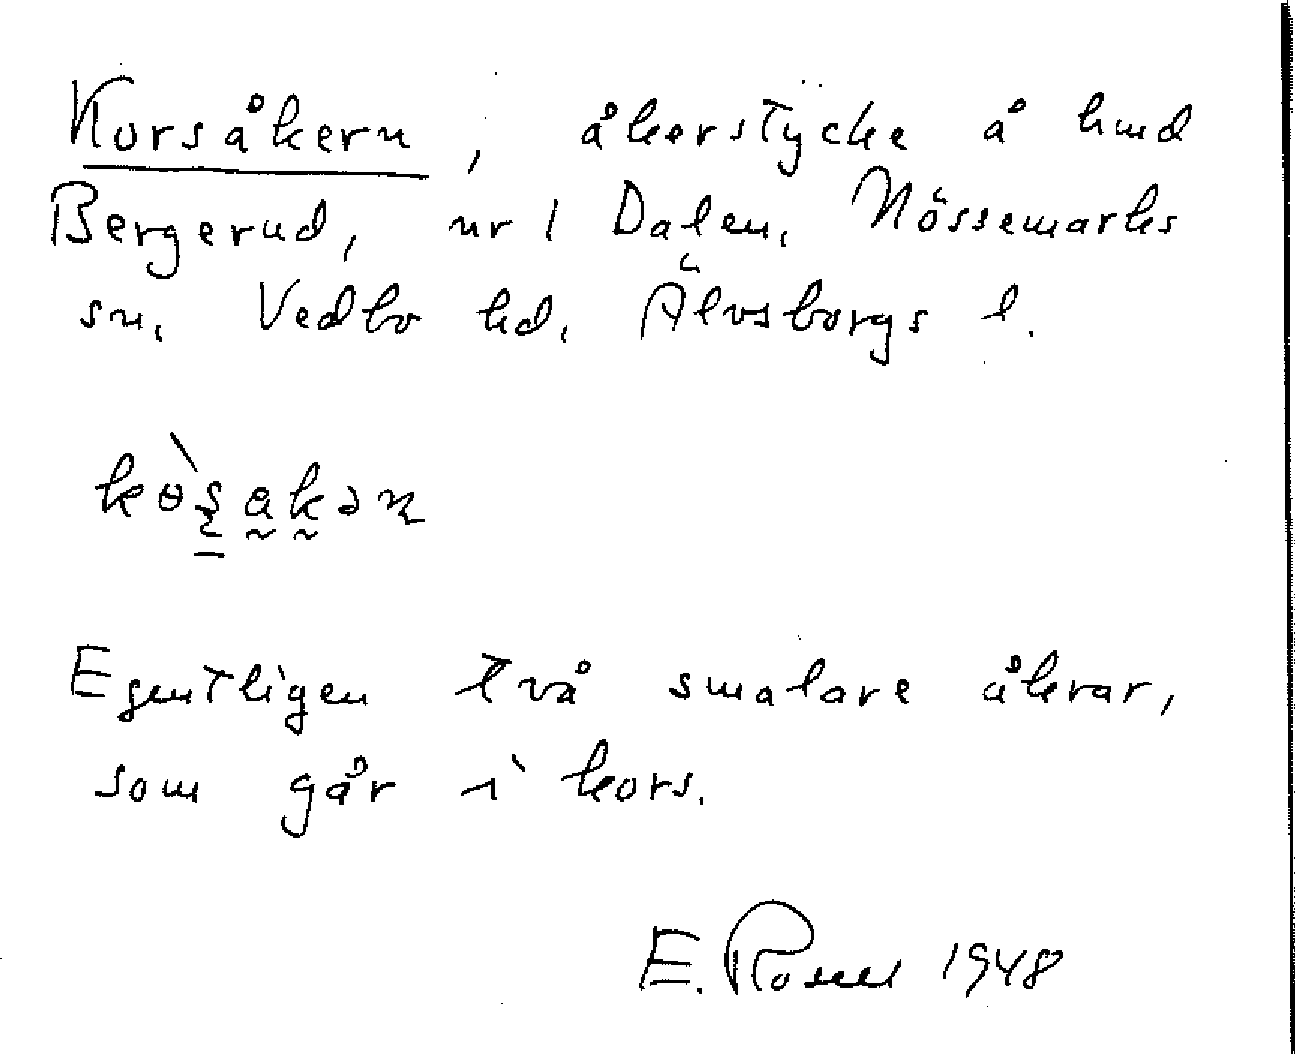 Korsåkern, åkerstycke å hmd
Bergerud, nr 1 Dalen, Nössemarks
sn, Vedbo hd, Älvsborgs l.
Egentligen två smalare åkrar,
som går i kors.
E. Rosell 1948